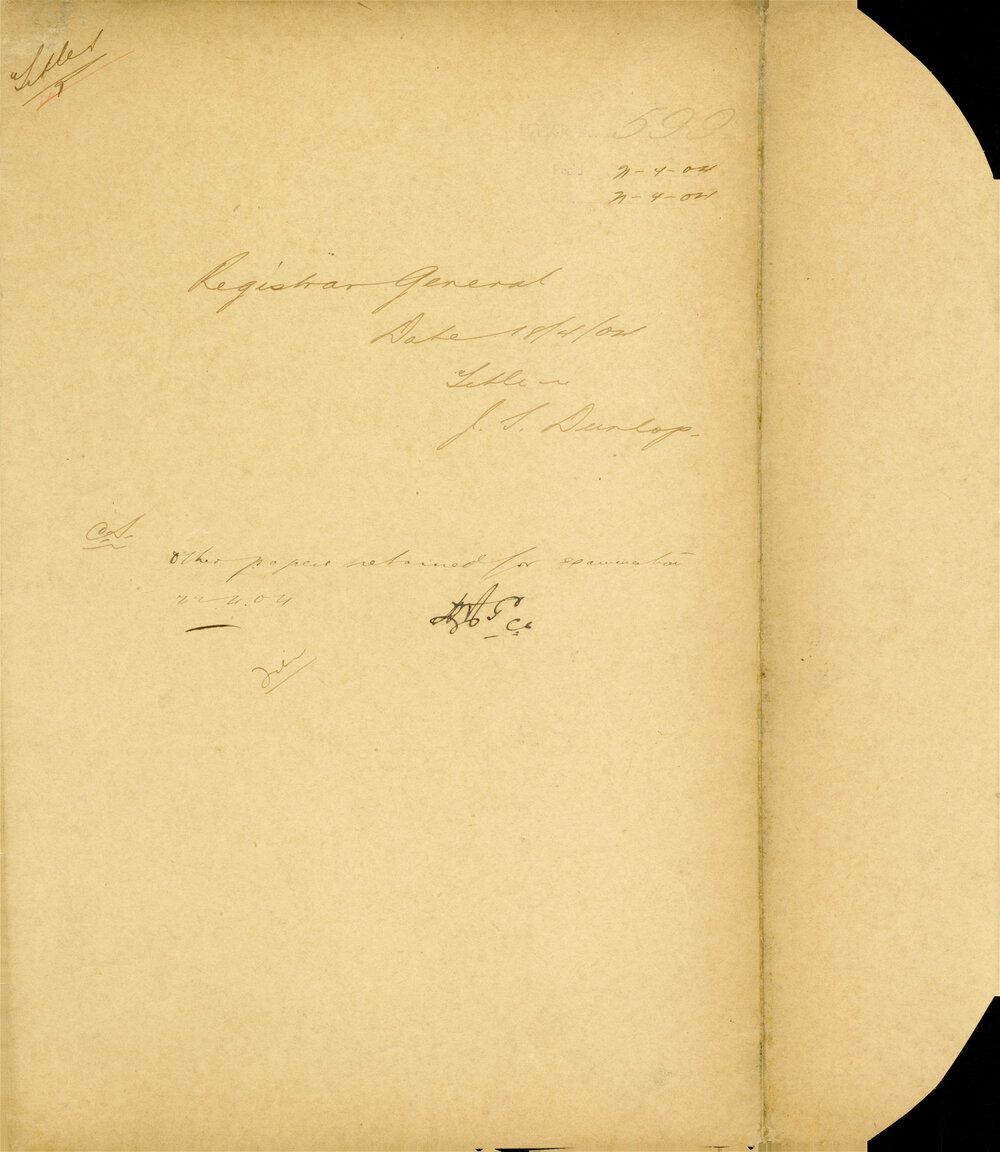 Titles
599
21-4-04
21-4-04
Registrar General
Date 18/4/04
Title
J. S. Dunlop.
other papers retained for examination
22.4.04
File